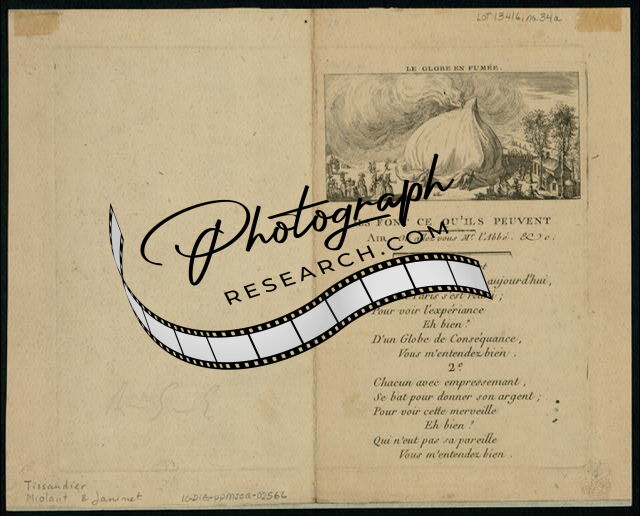 LOT 13416, no. 34a
LE GLOBE EN FUMÉE.
FONT CE QU'ILS PEUVENT
AIR. vous Mr. l'Abbé. &c.
Photograph
RESEARCH.COM
aujourd'hui,
Paris s'est
Pour voir l'expériance
Eh bien?
D'un Globe de Conséquance,
Vous m'entendez bien.
2e.
Chacun avec empressement,
Se bat pour donner son argent;
Pour voir cette merveille
Eh bien?
Qui n'eut pas sa pareille
Vous m'entendez bien.
Tissandier
Miolant & Janinet
LC-DIG-ppmsca-02566